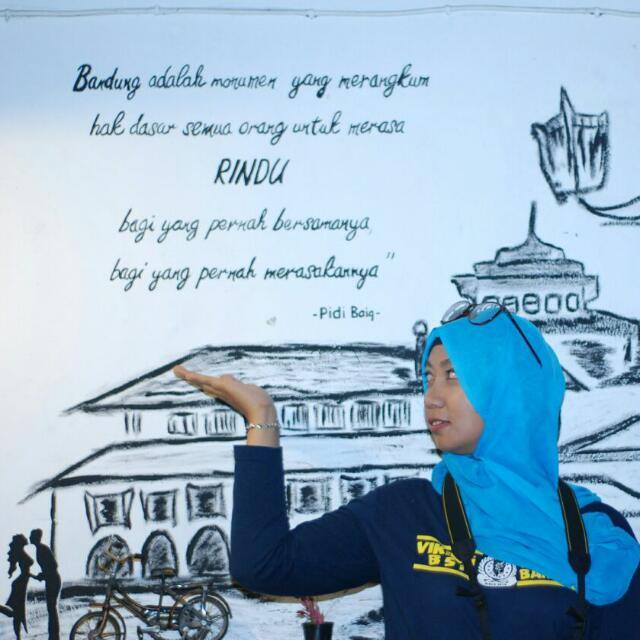 Bandung adalah monumen yang merangkum
hak dasar semua orang untuk merasa
RINDU
bagi yang pernah bersamanya,
bagi yang pernah merasakannya"
-Pidi Baiq-